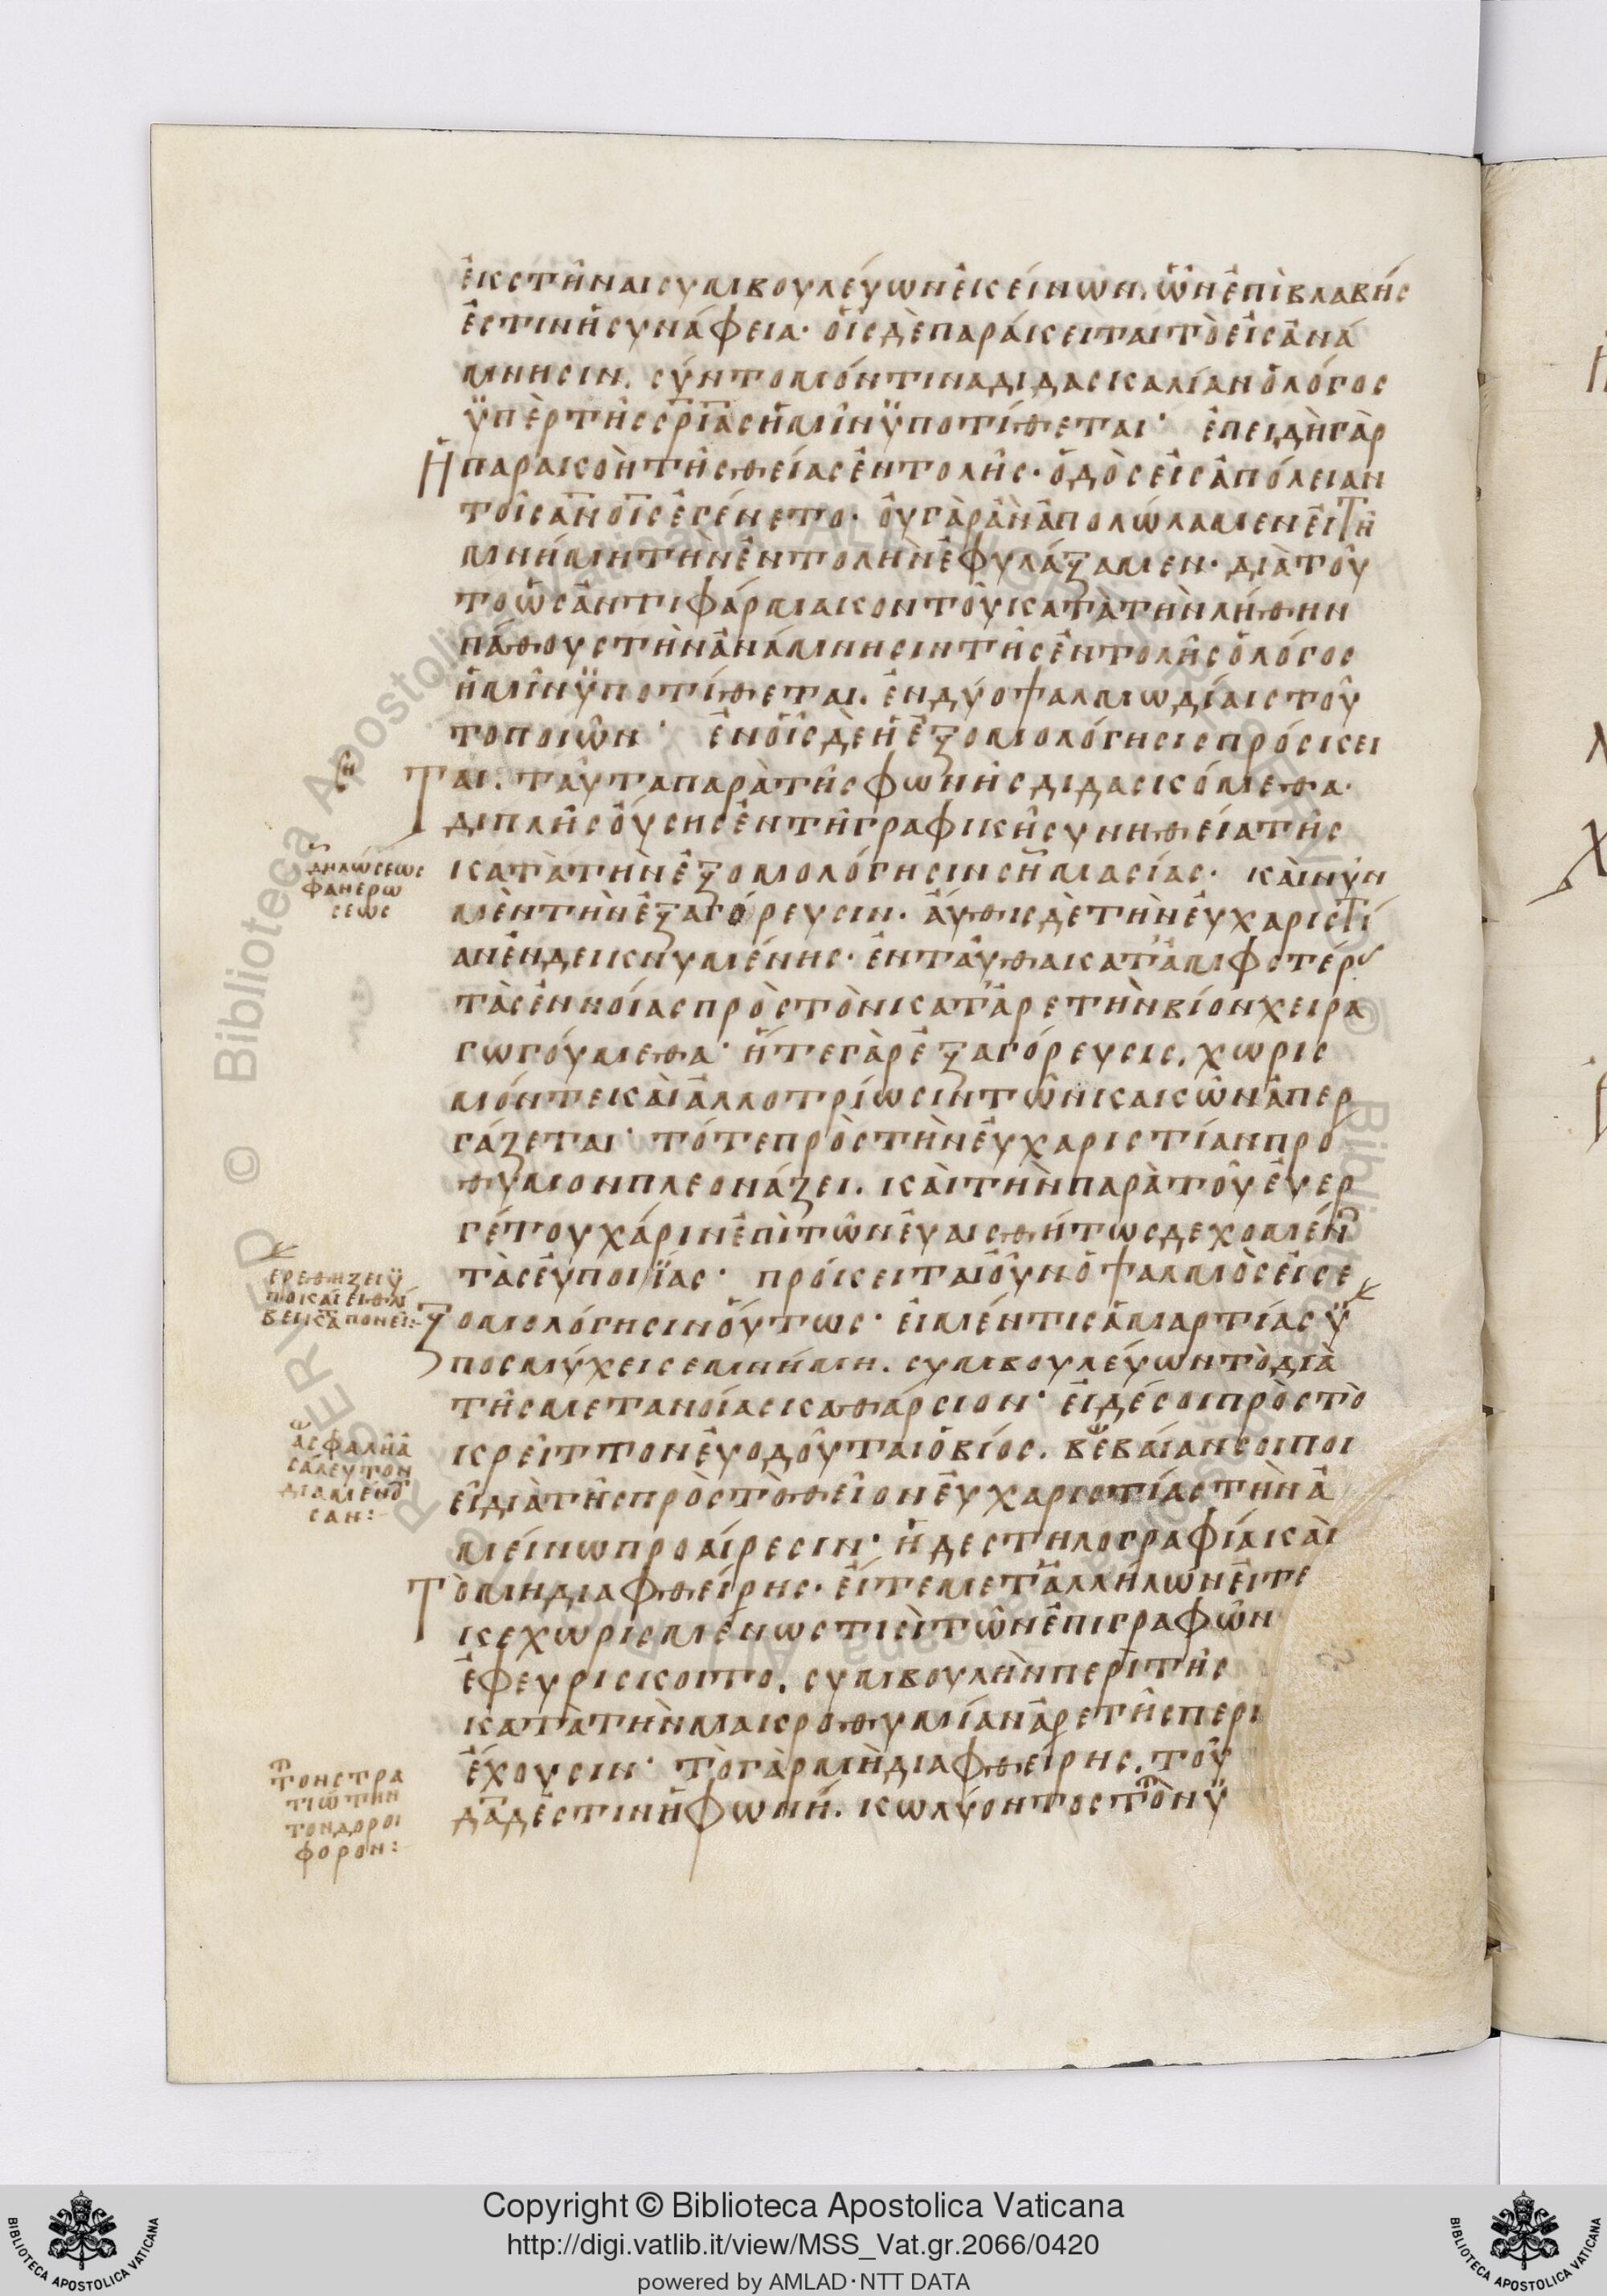 ἐκστῆναι συμβουλεύων ἐκείνων, ὧν ἐπὶβλαβής
ἐστιν ἡ συνάφεια· οἷς δὲ παράκειται τὸ εἰς ἀνά
μνησιν, σύντομόν τινα διδασκαλίαν ὁ λόγος
ὑπὲρ τῆς σρίας ἡμῖν ὑποτίθεται· ἐπειδὴ γὰρ
ἡ παρακοὴ τῆς θείας ἐντολῆς· ὁδὸς εἰς ἀπόλειαν
τοῖς ἀνοις ἐγένετο· οὐ γὰρ ἂν ἀπολώλαμεν εἰ τῆ
μνήμη τὴν ἐντολὴν ἐφυλάξαμεν· διὰ τοῦ
το ὡς ἀντιφάρμακον τοῦ κατὰ τὴν λήθην
πάθους τὴν ἀνάμνησιν τῆς ἐντολῆς ὁ λόγος
ἡμῖν ὑποτίθεται, ἐν δύο ψαλμωδίαις τοῦ
το ποιῶν· ἐν οἷς δὲ ἡ ἐξομολόγησις πρόσκει
ται, ταῦτα παρὰ τῆς φωνῆς διδασκόμεθα·
διπλῆς οὔσης ἐν τῆ γραφικῆ συνηθεία τῆς
δηλώσεως
φανερω
σεως
κατὰ τὴν ἐξομολόγησιν σημασίας· καὶ νῦν
μὲν τὴν ἐξαγόρευσιν· αὖθις δὲ τὴν εὐχαριστί
αν ἐνδεικνυμένης· ἐνταῦθα κατ' ἀμφοτέρ
τὰς ἐννοίας πρὸς τὸν κατ' ἀρετὴν βίον χειρα
γωγούμεθα· ἥ τε γὰρ ἐξαγόρευσις, χωρισ
μόν τε καὶ ἀλλοτρίωσιν τῶν κακῶν ἀπερ
γάζεται· τό τε πρὸς τὴν εὐχαριστίαν πρό
θυμον πλεονάζει, καὶ τὴν παρὰ τοῦ εὐερ
γέτου χάριν ἐπὶ τῶν εὐαισθήτως δεχομέν
τὰς εὐποιΐας· πρόκειται οὖν ὁ ψαλμὸς εἰς ἐ
ξομολόγησιν οὕτως· εἰ μέν τις ἁμαρτίας ὑ
ποσμύχει σε μνήμη, συμβουλεύων τὸ διὰ
τῆς μετανοίας καθάρσιον· εἰ δέ σοι πρὸς τὸ
ασφαλῆ ἀ
σάλευτον
κρεῖττον εὐοδοῦται ὁ βίος, βεβαίαν σοι ποι
εῖ διὰ τῆς πρὸς τὸ θεῖον εὐχαριστίας τὴν ἀ
μείνω προαίρεσιν· ἡ δε στηλογραφία καὶ
τὸ μη διαφθείρης· εἴτε μετ' ἀλλήλων εἴτε
κεχωρισμένως τισὶ τῶν ἐπιγραφῶν
ἐφευρίσκοιτο, συμβουλὴν περὶ τῆς
κατὰ τὴν μακροθυμίαν ἀρετῆς περι
ἔχουσιν· τὸ γὰρ μὴ διαφθείρης, τοῦ
τον στρα
τιώτην
τον δορυ
φορον:
δαδ ἐστιν ἡ φωνή, κωλύοντος τὸν ὑ
Copyright © Biblioteca Apostolica Vaticana
http://digi.vatlib.it/view/MSS_Vat.gr.2066/0420
powered by AMLAD·NTT DATA
BIBLIOTECA APOSTOLICA VATICANA
BIBLIOTECA APOSTOLICA VATICANA